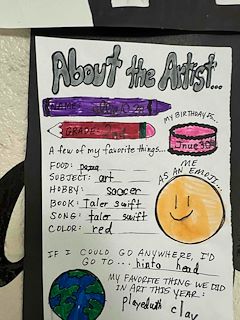 About the Artist...
NAME:
GRADE: 2nd
MY BIRTHDAY IS...
A few of my favorite things...
FOOD:
ME
AS AN EMOJI...
SUBJECT: art
HOBBY: soccer
BOOK: Taler swift
SONG: taler swift
COLOR: red
IF I COULD GO ANYWHERE, I'D
GO TO... hinto head
MY FAVORITE THING WE DID
IN ART THIS YEAR:
playeduth clay